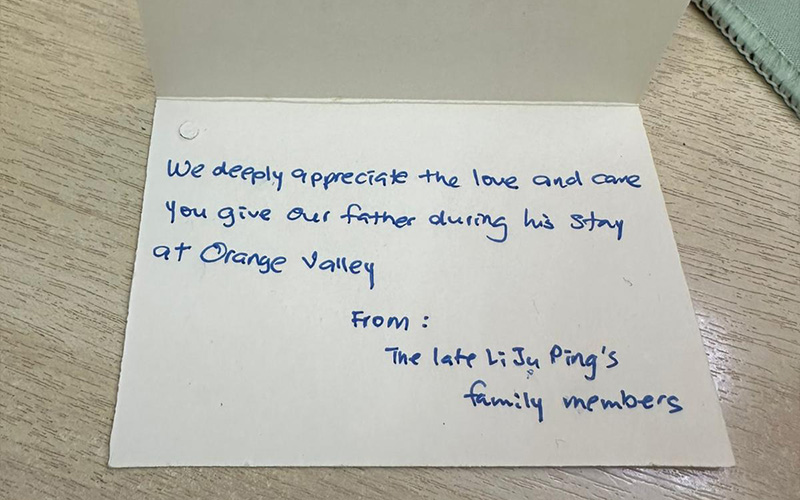 We deeply appreciate the love and care
you give our father during his stay
at Orange Valley
From :
The late Li Ju Ping's
family members